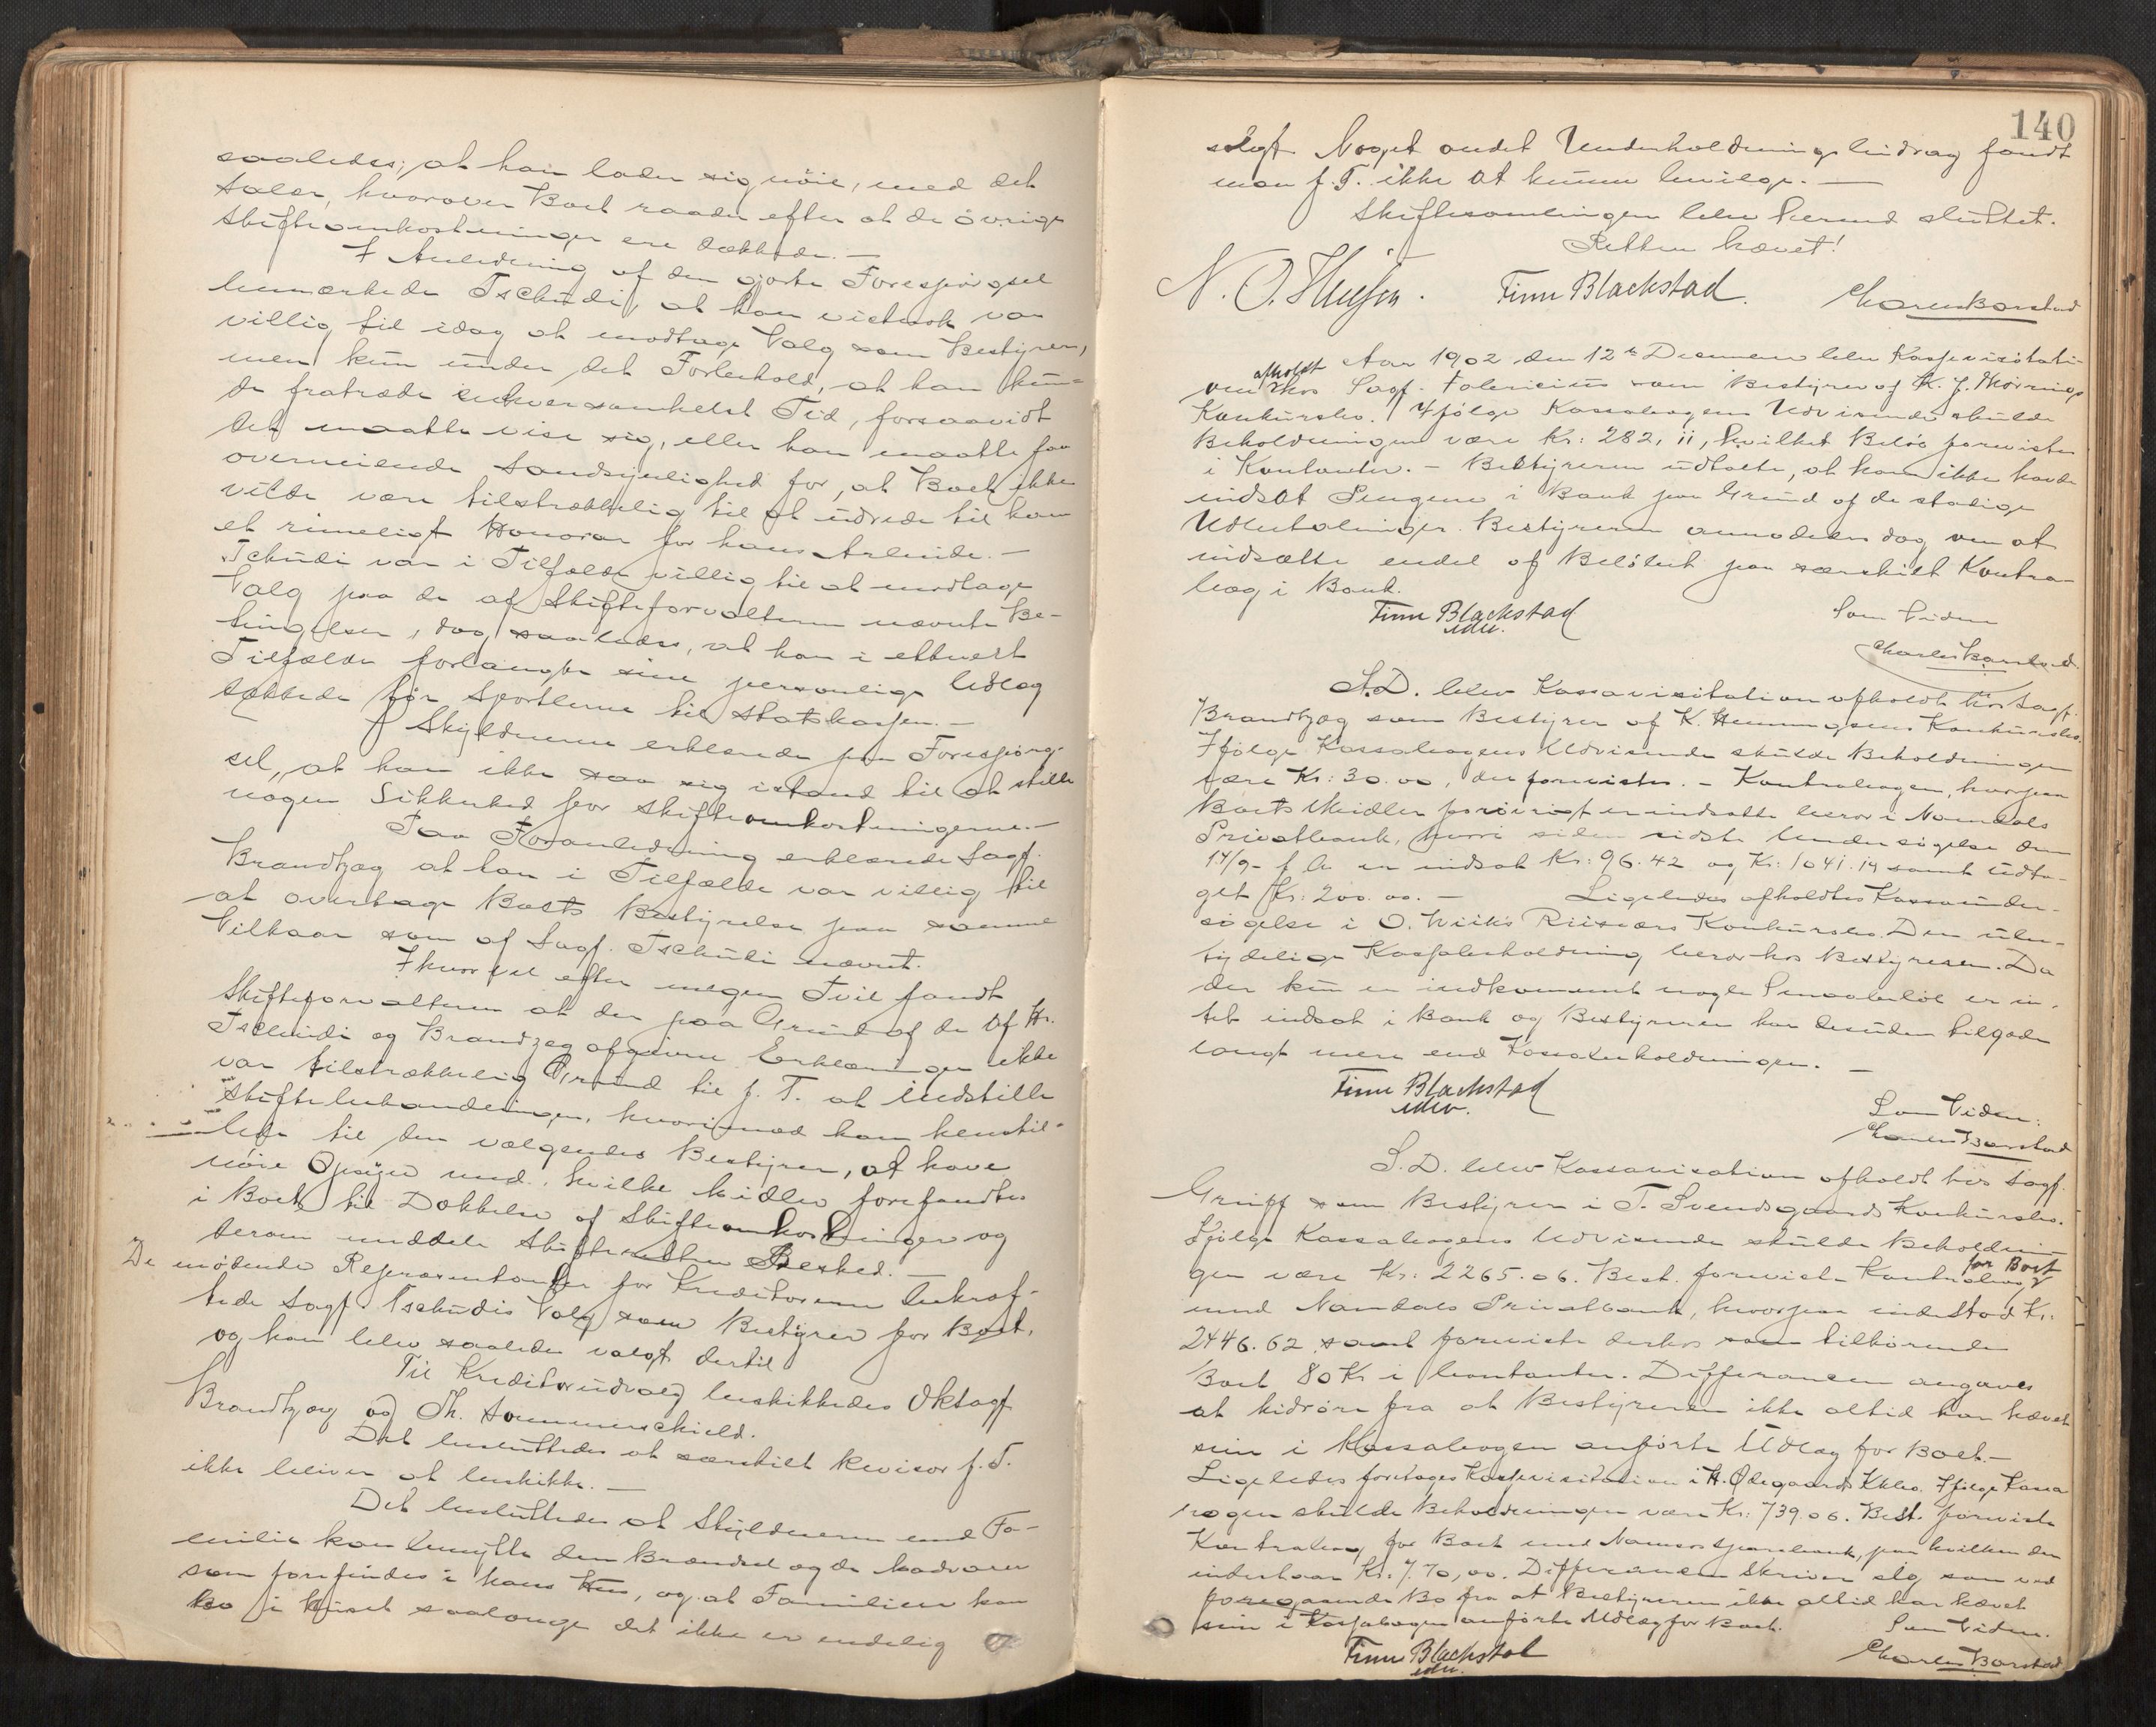 saaledes, at han lader sig nøie, med det
Salær, hvorover Boet raader efter at de øvrige
Skifteomkostninger ere dækkede. —
I Anledning af den gjorte Forespørgsel
bemærkede Tschudi, at han vistnok var
villig til idag at modtage Valg som Bestyrer,
men kun under det Forbehold, at han kun-
de fratræde enhversomhelst Tid, forsaavidt
det maatte vise sig, eller han maatte faa
overveiende Sandsynlighed for, at Boet ikke
vilde være tilstrækkelig til at udrede til ham
et rimeligt Honorar for hans Arbeide. —
Tschudi var i Tilfælde villig til at modtage
Valg paa de af Skifteforvalteren nævnte Be-
tingelser, dog saaledes, at han i ethvert
Tilfælde forlangte sine personlige Udlæg
dækkede før Sportlerne til Statskassen. —
Skyldneren erklærede paa Forespørg-
sel, at han ikke saa sig istand til at stille
nogen Sikkerhed for Skifteomkostningerne. —
Paa Foranledning erklærede Sagf.
Brandtzæg at han i Tilfælde var villig til
at overtage Boets Bestyrelse paa samme
Vilkaar som af Sagf. Tschudi nævnt.
Ihvorvel efter megen Tvil fandt
Skifteforvalteren at der paa Grund af de af Hr.
Tschudi og Brandtzæg afgivne Erklæringer ikke
var tilstrækkelig Grund til f. T. at indstille
Skiftebehandlingen, hvorimod han henstil-
lede til den vælgendes Bestyrer, at have
nøie Opsyn med, hvilke Midler forefandtes
i Boet til Dækkelse af Skifteomkostninger og
derom meddele Skifteretten Besked. —
De mødende Repræsentanter for Kreditorerne bekræf-
tede Sagf. Tschudis Valg som Bestyrer for Boet,
og han blev saaledes valgt dertil
Til Kreditorudvalg beskikkedes Oktsagf
Brandtzæg og Th. Sommerschield.
Det besluttedes at særskilt Revisor f. T.
ikke bliver at beskikke. —
Det besluttedes at Skyldneren med Fa-
milie kan benytte den Brændsel og de Madvarer
som forefindes i hans Hus, og at Familien kan
bo i Huset saalænge det ikke er endelig
140
solgt. Noget andet Underholdningsbidrag fandt
man f. T. ikke at kunne bevilge. —
Skiftesamlingen blev herved sluttet.
Retten hævet!
Finn Blackstad. Charles Barstad
Aar 1902 den 12te December blev Kassevisitati-
on afholdt hos Sagf. Fabricius som Bestyrer af K. J. Mørrings
Konkursbo. Ifølge Kassabogens Udvisende skulde
Beholdningen være Kr: 282,11, hvilket Beløb forevistes
i Kontanter. — Bestyreren udtalte, at han ikke havde
indsat Pengene i Bank paa Grund af de stadige
Udbetalinger. Bestyreren anmodedes dog om at
indsætte endel af Beløbet paa særskilt Kontra-
bog i Bank.
Finn Blackstad Som Vidne
edv. Charles Barstad
S.D. blev Kassavisitation afholdt hos Sagf.
Brandtzæg som Bestyrer af K. Hemmingsens Konkursbo.
Ifølge Kassabogens Udvisende skulde Beholdningen
være Kr: 30.00, der forevistes. — Kontrabogen, hvorpaa
Boets Midler forøvrigt er indsatte beror i Namdals
Privatbank, hvori siden sidste Undersøgelse den
17/9 f. A. er indsat Kr: 96.42 og Kr: 1041.14 samt udta-
get Kr: 200.00. — Ligeledes afholdtes Kassaunder-
søgelse i O. Wiiks Riisnæs Konkursbo. Den ube-
tydelige Kassabeholdning beror hos Bestyreren. Da
der kun er indkommet nogle Smaabeløb er in-
tet indsat i Bank og Bestyreren har desuden tilgode
langt mere end Kassabeholdningen. —
Finn Blackstad
edv. Som Vidne:
Charles Barstad
S.D. blev Kassavisation afholdt hos Sagf.
Gruff som Bestyrer i T. Svendsgaards Konkursbo.
Ifølge Kassabogens Udvisende skulde Beholdnin-
gen være Kr: 2265.06. Best. foreviste Kontrabog for Boet
med Namdals Privatbank, hvorpaa indestod Kr.
2446.62 samt foreviste derhos som tilhørende
Boet 80 Kr i kontanter. Differancen angaves
at hidrøre fra at Bestyreren ikke altid har hævet
sin i Kassabogen anførte Udlæg for Boet. —
Ligeledes foretoges Kassevisitation i H. Ødegaards Kkbo. Ifølge Kassa
bogen skulde Beholdningen være Kr: 739.06. Best. foreviste
Kontrabog for Boet med Namsos Sparebank, paa hvilken der
indestaar Kr: 770,00. Differancen skriver sig som ved
foregaaende Bo fra at Bestyreren ikke altid har hævet
sin i Kassabogen anførte Udlæg for Boet. Som Vidne.
Finn Blackstad Charles Barstad
edv.